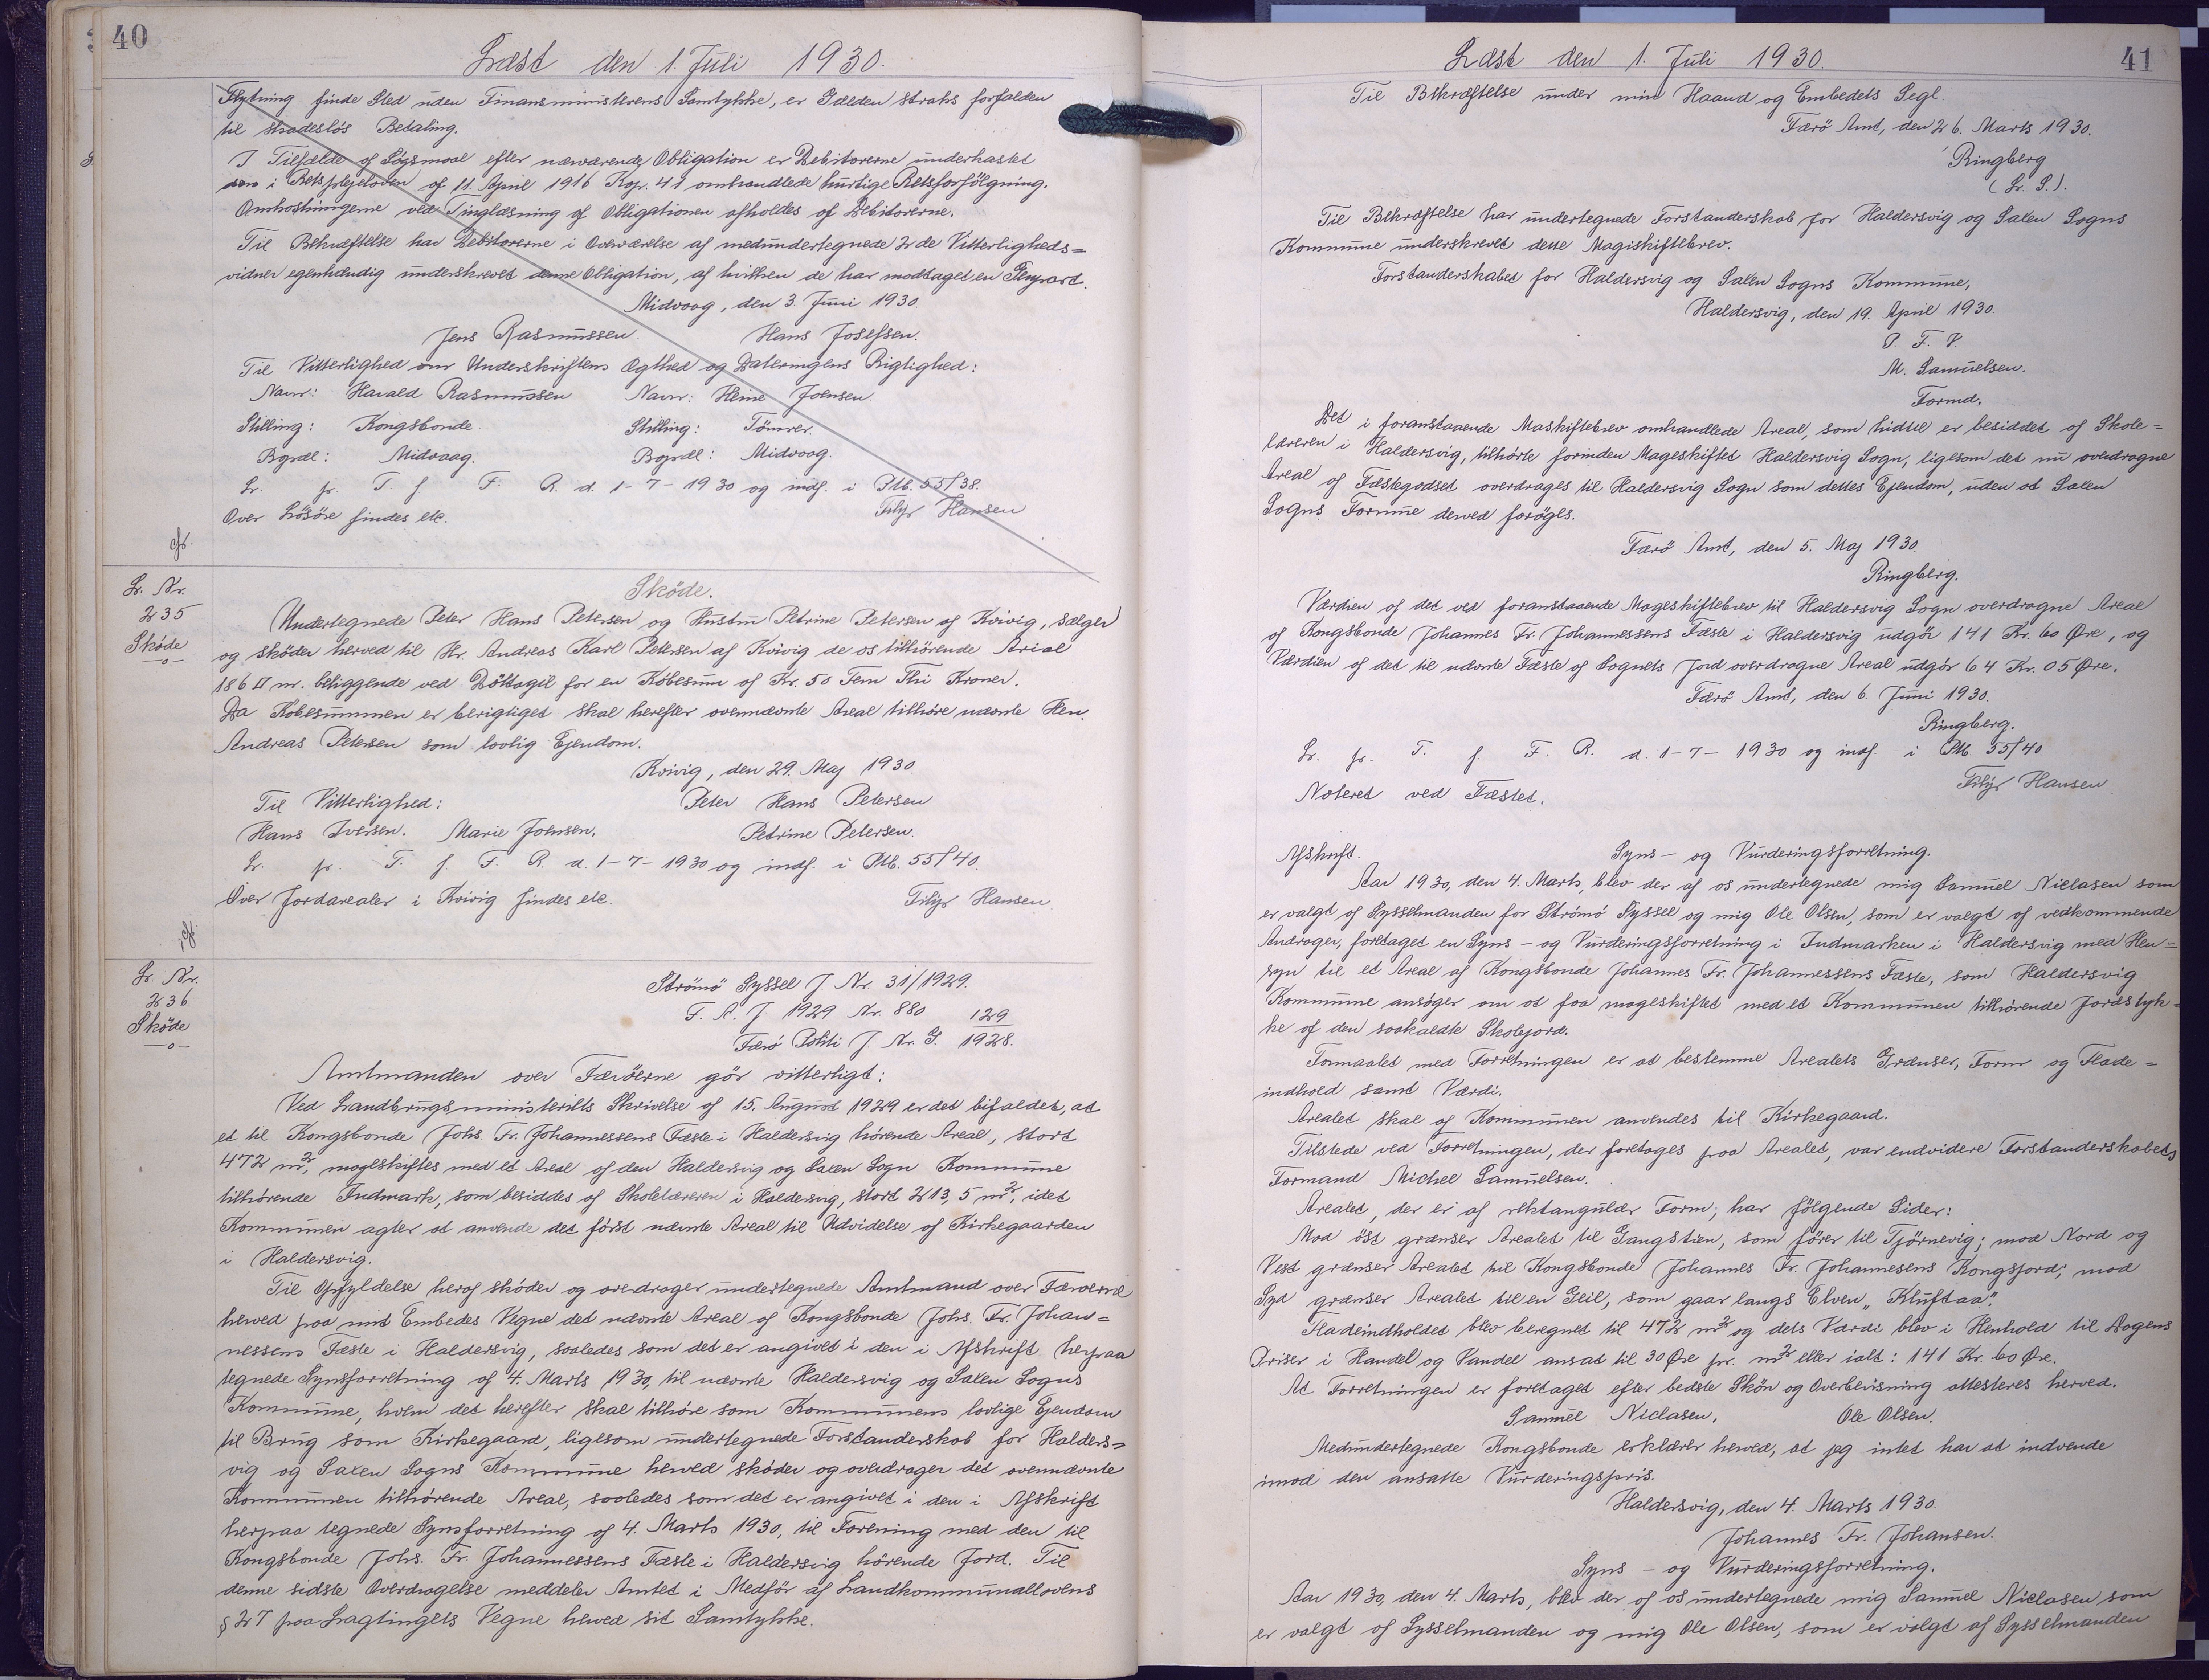 40
Læst den 1. Juli 1930.
Flytning finde Sted uden Finansministerens Samtykke, er Gælden straks forfalden
til skadesløs Betaling.
I Tilfælde af Søgsmaal efter nærværende Obligation er Debitorerne underkastet
den i Retsplejeloven af 11. April 1916 Kap. 41 omhandlede hurtige Retsforfölgning.
Omkostningerne ved Tinglæsning af Obligationen afholdes af Debitorerne.
Til Bekræftelse har Debitorerne i Overværelse af medundertegnede 2de Vitterligheds=
vidner egenhændig underskrevet denne Obligation, af hvilken de har modtaget en Genpart.
Midvaag, den 3. Juni 1930.
Jens Rasmussen. Hans Josefsen.
Til Vitterlighed om Underskriftens Ægthed og Dateringens Rigtighed:
Navn: Harald Rasmussen Navn: Heine Joensen.
Stilling: Kongsbonde. Stilling: Tömrer.
Bopæl: Midvaag. Bopæl: Midvaag.
Lr. fr. T. f F. R. d. 1-7-1930 og indf. i Ptb. 55/38.
Over Lösöre findes etc. Filip Hansen
cfr.
Lr. Nr.
235
Sköde
-o-
Sköde.
Undertegnede Peter Hans Petersen og Hustru Petrine Petersen af Kvivig, sælger
og sköder herved til Hr. Andreas Karl Petersen af Kvivig de os tilhörende Arial
186 □ m. beliggende ved Döttagil for en Köbesum af Kr. 50 Fem Thi Kroner.
Da Köbesummen er berigtiget skal herefter ovennævnte Areal tilhöre nævnte Herr.
Andreas Petersen som lovlig Ejendom.
Kvivig, den 29. Maj 1930.
Til Vitterlighed: Peter Hans Petersen
Hans Iversen. Marie Johnsen. Petrine Petersen.
Lr. fr. T. f F. R. d. 1-7-1930 og indf. i Ptb. 55/40.
Over Jordarealer i Kvivig findes etc. Filip Hansen.
cfr.
Lr. Nr.
236
Sköde
-o-
Strömö Syssel J. Nr. 31/1929.
F. A. J. 1929 Nr. 880
Færö Politi J. Nr. G. 129/1928.
Amtmanden over Færöerne gör vitterligt:
Ved Landbrugsministeriets Skrivelse af 15. August 1929 er det bifaldet, at
et til Kongsbonde Johs. Fr. Johannessens Fæste i Haldersvig hörende Areal, stort
472 m², mageskiftes med et Areal af den Haldersvig og Saxen Sogn Kommune
tilhörende Indmark, som besiddes af Skolelæreren i Haldersvig, stort 213,5 m², idet
Kommunen agter at anvende det först nævnte Areal til Udvidelse af Kirkegaarden
i Haldersvig.
Til Opfyldelse heraf sköder og overdrager undertegnede Amtmand over Færöerne
herved paa mit Embedes Vegne det nævnte Areal af Kongsbonde Johs. Fr. Johan=
nessens Fæste i Haldersvig, saaledes som det er angivet i den i Afskrift herpaa
tegnede Synsforretning af 4. Marts 1930, til nævnte Haldersvig og Saxen Sogns
Kommune, hvem det herefter skal tilhöre som Kommunens lovlige Ejendom
til Brug som Kirkegaard, ligesom undertegnede Forstanderskab for Halders=
vig og Saxen Sogns Kommune herved sköder og overdrager det ovennævnte
Kommunen tilhörende Areal, saaledes som det er angivet i den i Afskrift
herpaa tegnede Synsforretning af 4. Marts 1930, til Forening med den til
Kongsbonde Johs. Fr. Johannessens Fæste i Haldersvig hörende Jord. Til
denne sidste Overdragelse meddeler Amtet i Medför af Landkommunallovens
§ 27 paa Lagtingets Vegne herved sit Samtykke.
41
Læst den 1. Juli 1930.
Til Bekræftelse under min Haand og Embedets Segl.
Færö Amt, den 26. Marts 1930.
Ringberg
(L. S.).
Til Bekræftelse har undertegnede Forstanderskab for Haldersvig og Saxen Sogns
Kommune underskrevet dette Magiskiftebrev.
Forstanderskabet for Haldersvig og Saxen Sogns Kommune,
Haldersvig, den 19. April 1930.
P. F. V.
M. Samuelsen.
Formd.
Det i foranstaaende Maskiftebrev omhandlede Areal, som hidtil er besiddet af Skole=
læreren i Haldersvig, tilhörte forinden Mageskiftet Haldersvig Sogn, ligesom det nu overdragne
Areal af Fæstegodset overdrages til Haldersvig Sogn som dettes Ejendom, uden at Saxen
Sogns Formue derved foröges.
Færö Amt, den 5. Maj 1930.
Ringberg.
Værdien af det ved foranstaaende Mageskiftebrev til Haldersvig Sogn overdragne Areal
af Kongsbonde Johannes Fr. Johannessens Fæste i Haldersvig udgör 141 Kr. 60 Øre, og
Værdien af det til nævnte Fæste af Sognets Jord overdragne Areal udgör 64 Kr. 05 Øre.
Færö Amt, den 6. Juni 1930.
Ringberg.
Lr. fr. T. f F. R. d. 1-7-1930 og indf. i Ptb. 55/40
Noteret ved Fæstet. Filip Hansen
Afskrift. Syns- og Vurderingsforretning.
Aar 1930, den 4. Marts, blev der af os undertegnede mig Samuel Niclasen som
er valgt af Sysselmanden for Strömö Syssel og mig Ole Olsen, som er valgt af vedkommende
Andrager, foretaget en Syns- og Vurderingsforretning i Indmarken i Haldersvig med Hen=
syn til et Areal af Kongsbonde Johannes Fr. Johannessens Fæste, som Haldersvig
Kommune ansöger om at faa mageskiftet med et Kommunen tilhörende Jordstyk=
ke af den saakaldte Skolejord.
Formaalet med Forretningen er at bestemme Arealets Grænser, Form og Flade=
indhold samt Værdi.
Arealet skal af Kommunen anvendes til Kirkegaard.
Tilstede ved Forretningen, der foretages paa Arealet, var endvidere Forstanderskabets
Formand Michel Samuelsen.
Arealet, der er af rektangulær Form, har fölgende Sider:
Mod öst grænser Arealet til Gangstien, som förer til Tjörnevig; mod Nord og
Vest grænser Arealet til Kongsbonde Johannes Fr. Johannesens Kongsjord; mod
Syd grænser Arealet til en Geil, som gaar langs Elven "Kluftaa".
Fladeindholdet blev beregnet til 472 m² og dets Værdi blev i Henhold til Dagens
Priser i Handel og Vandel ansat til 30 Øre pr. m² eller ialt: 141 Kr. 60 Øre.
At Forretningen er foretaget efter bedste Skön og Overbevisning attesteres herved.
Samuel Niclasen. Ole Olsen.
Medundertegnede Kongsbonde erklærer herved, at jeg intet har at indvende
imod den ansatte Vurderingspris.
Haldersvig, den 4. Marts 1930.
Johannes Fr. Johansen.
Syns- og Vurderingsforretning.
Aar 1930, den 4. Marts, blev der af os undertegnede mig Samuel Niclasen som
er valgt af Sysselmanden og mig Ole Olsen, som er valgt af Sysselmanden